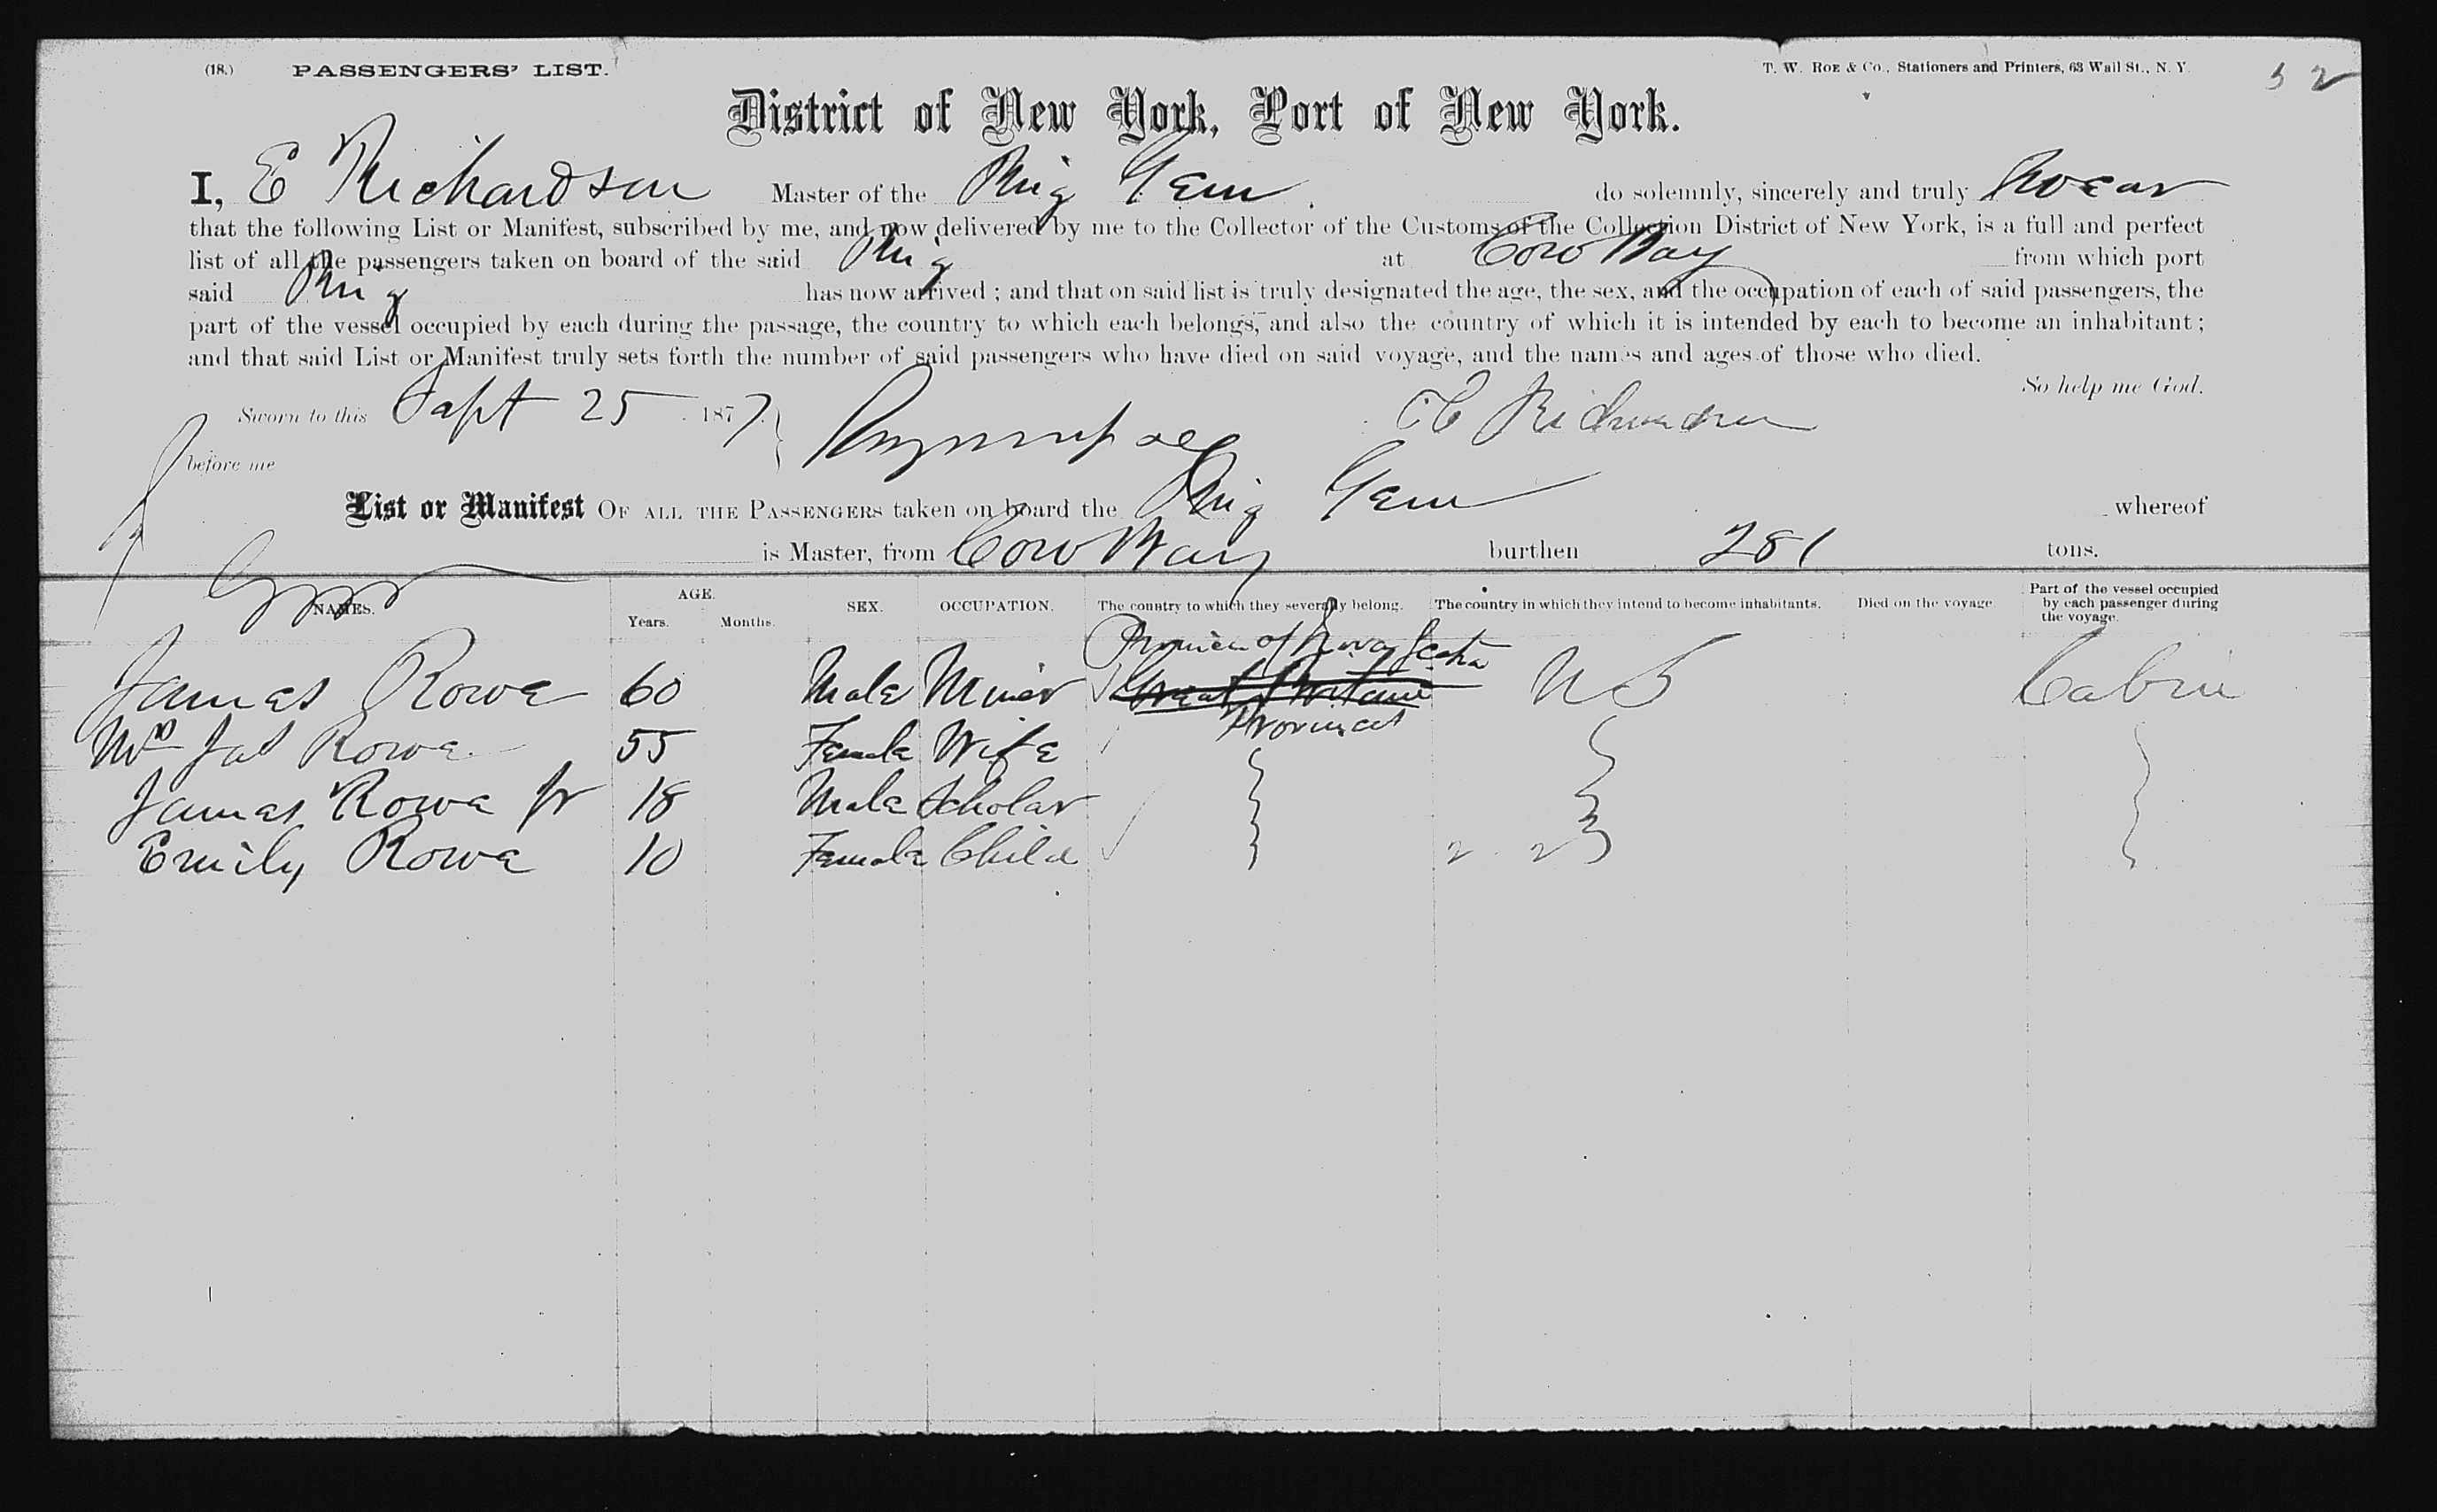 (18.) PASSENGERS' LIST. T. W. ROE & Co., Stationers and Printers, 63 Wall St., N. Y. 52
District of New York, Port of New York.
I, E Richardson Master of the Brig Gem do solemnly, sincerely and truly Swear
that the following List or Manifest, subscribed by me, and now delivered by me to the Collector of the Customs of the Collection District of New York, is a full and perfect
list of all the passengers taken on board of the said Brig at Cow Bay from which port
said Brig has now arrived ; and that on said list is truly designated the age, the sex, and the occupation of each of said passengers, the
part of the vessel occupied by each during the passage, the country to which each belongs, and also the country of which it is intended by each to become an inhabitant ;
and that said List or Manifest truly sets forth the number of said passengers who have died on said voyage, and the names and ages of those who died.
So help me God.
Sworn to this Sept 25 1877. E Richardson
before me
List or Manifest OF ALL THE PASSENGERS taken on board the Brig Gem whereof
is Master, from Cow Bay burthen 281 tons.
NAMES. AGE. Years. Months. SEX. OCCUPATION. The country to which they severally belong. The country in which they intend to become inhabitants. Died on the voyage. Part of the vessel occupied by each passenger during the voyage.
Province of Nova Scotia
James Rowe 60 Male Miner Great Britain U S Cabin
Provinces
Mrs Jas Rowe 55 Female Wife
James Rowe Jr 18 Male Scholar
Emily Rowe 10 Female Child 2 2